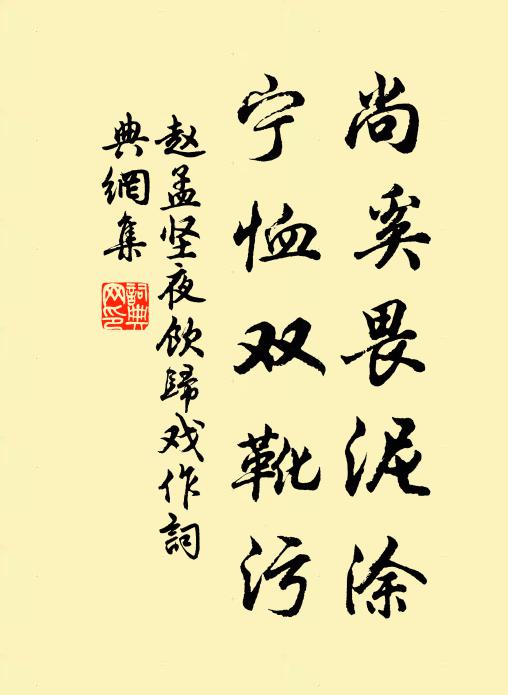 尚奚畏泥涂
宁恤双靴污
赵孟坚夜饮归戏作词
典網集
詞典
网印